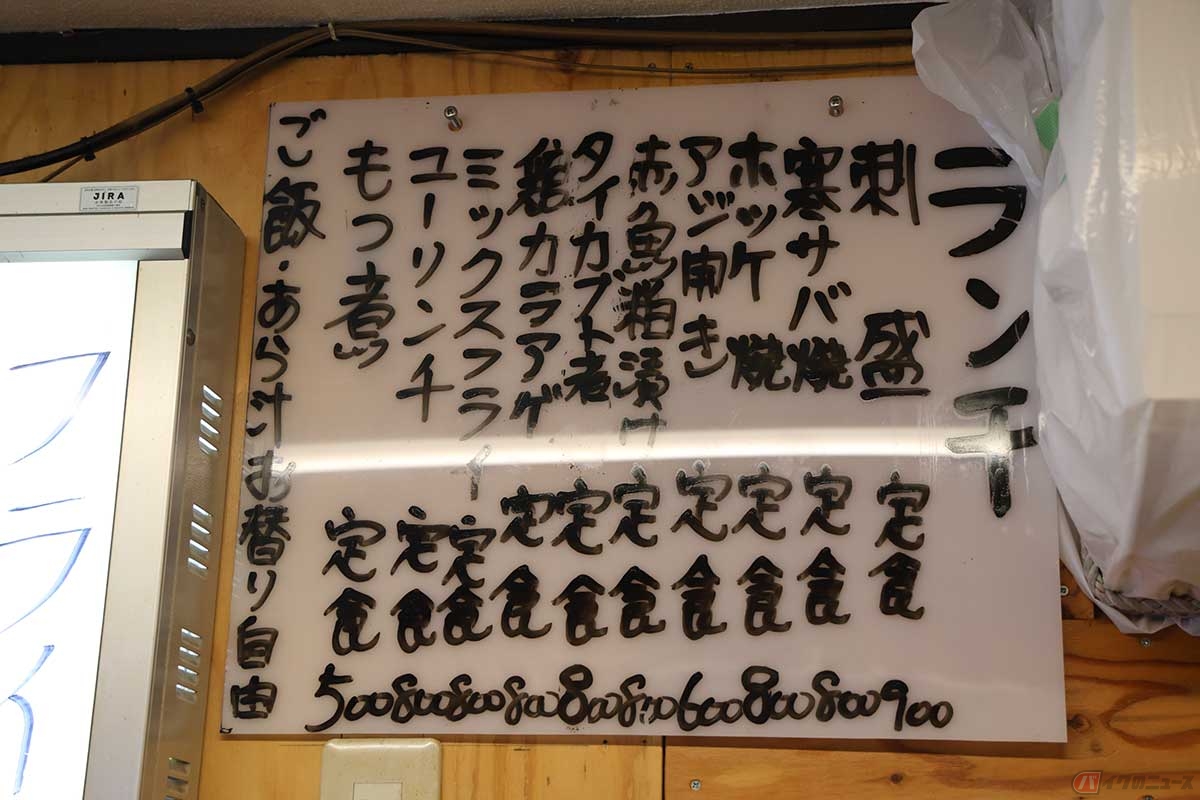 ランチ
刺盛定食900
寒サバ焼定食800
ホッケ焼定食800
アジ開き定食600
赤魚粕漬け定食800
タイカブト煮定食800
鶏カラアゲ定食800
ミックスフライ定食800
ユーリンチ定食800
もつ煮定食500
ご飯・あら汁お替り自由
JIRA
バイクのニュース